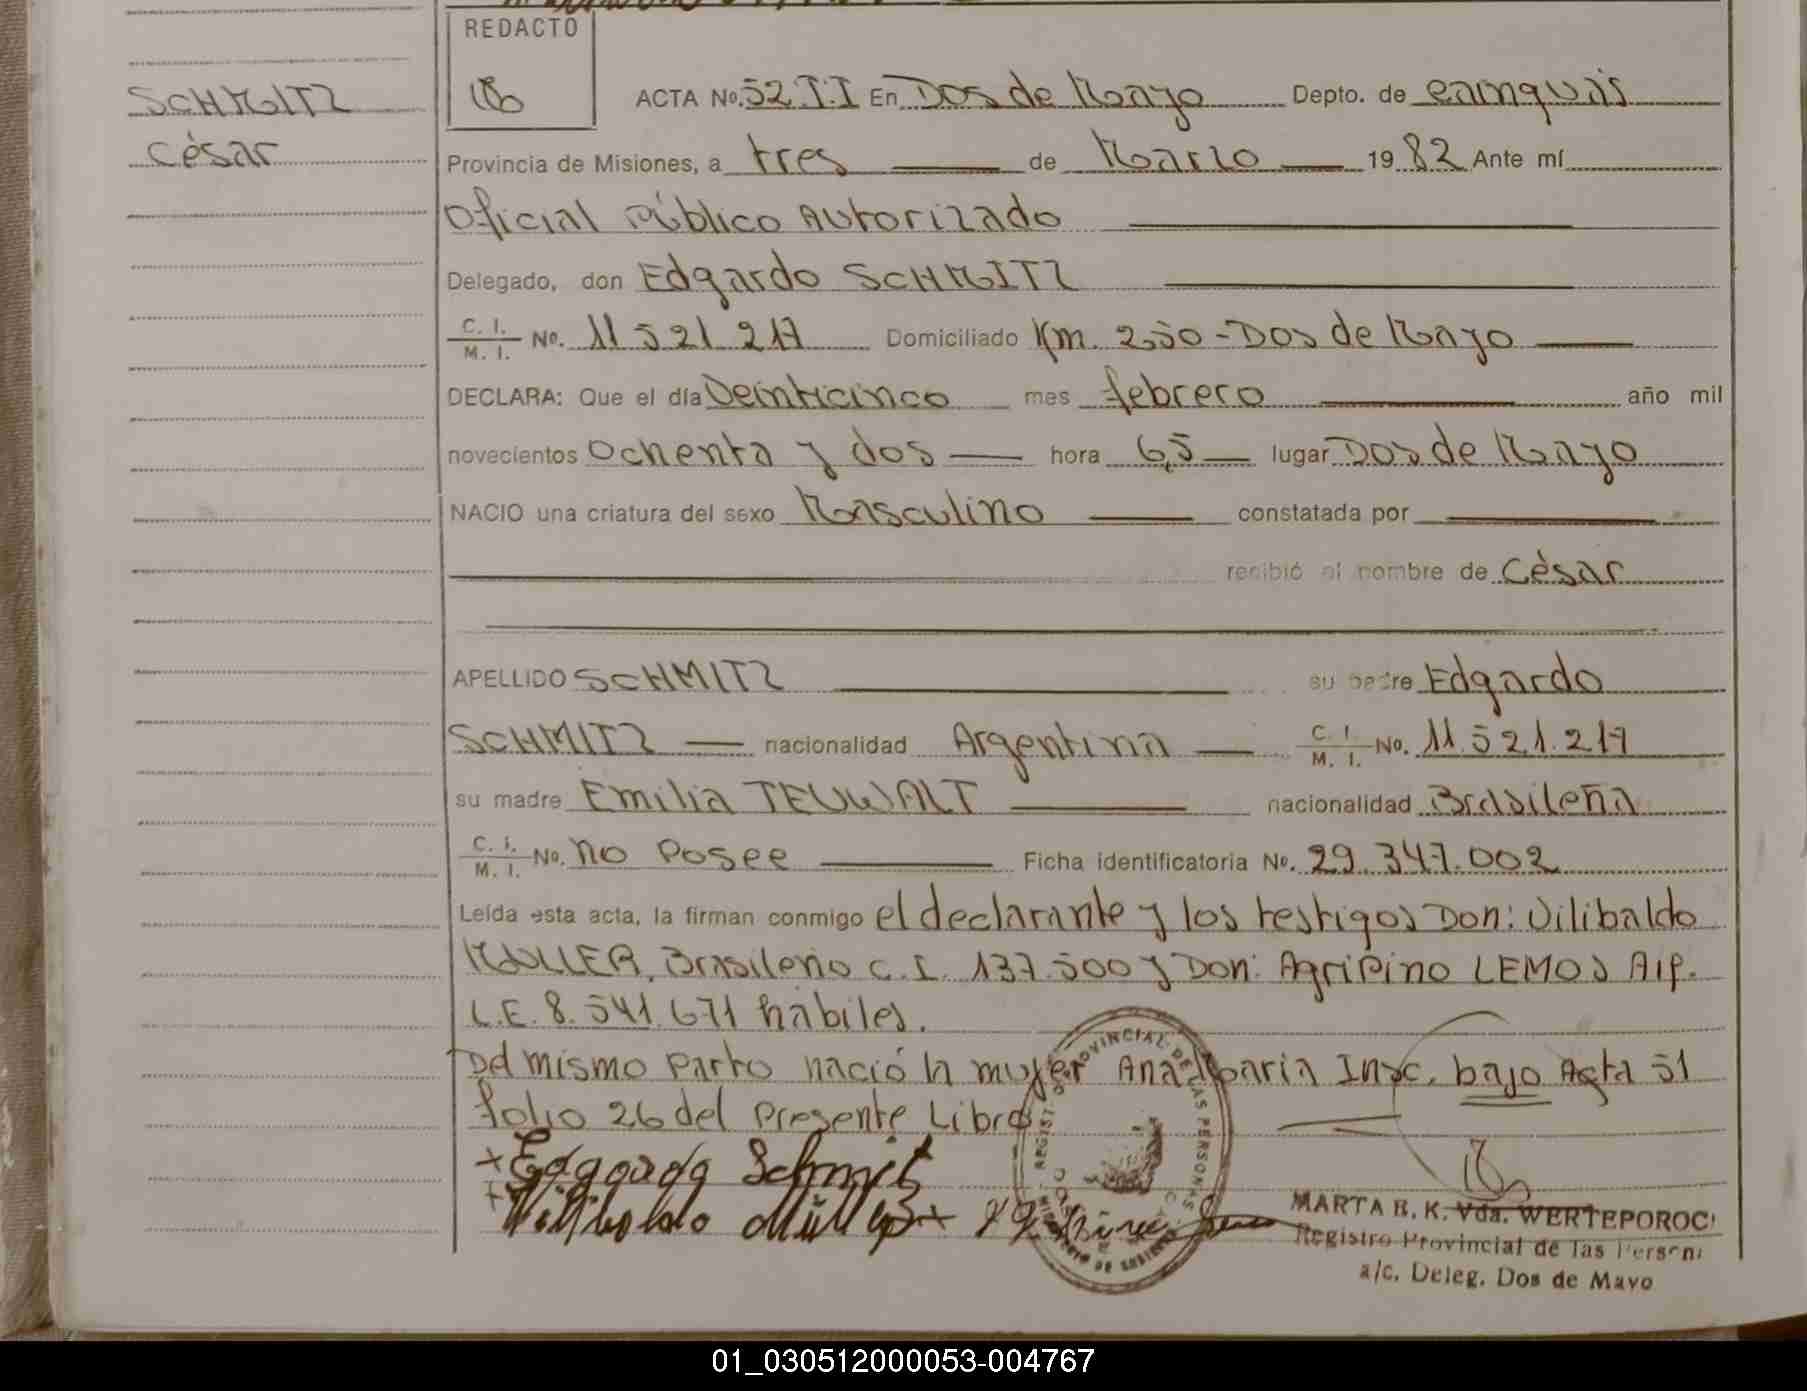 REDACTO
SCHMITZ
César
ACTA No. 52 T.I En Dos de Mayo Depto. de cainguás
Provincia de Misiones, a tres de Marzo 1982 Ante mí
Oficial Público Autorizado
Delegado, don Edgardo SCHMITZ
C. I. M. I. No. 11 521 217 Domiciliado Km. 250 - Dos de Mayo
DECLARA: Que el día Veinticinco mes febrero año mil
novecientos Ochenta y dos hora 6,5 lugar Dos de Mayo
NACIO una criatura del sexo Masculino constatada por
recibió el nombre de César
APELLIDO SCHMITZ su padre Edgardo
SCHMITZ nacionalidad Argentina C. I. M. I. No. 11.521.217
su madre Emilia TEUWALT nacionalidad Brasileña
C. I. M. I. No. no Posee Ficha identificatoria No. 29.347.002
Leída esta acta, la firman conmigo el declarante y los testigos Don: Vilibaldo
MÜLLER, Brasileño C.I. 137.500 y Don: Agripino LEMOS Arg.
L.E. 8.541.671 hábiles.
Del mismo Parto nació la mujer Ana Maria Insc. bajo Acta 51
folio 26 del Presente Libro
+ Edgardo Schmit
+ Williboldo Müller +
REGIST PROVINCIAL DE LAS PERSONAS
MARTA R. K. Vda. WERTEPOROC
Registro Provincial de las Person
a/c. Deleg. Dos de Mayo
01_030512000053-004767